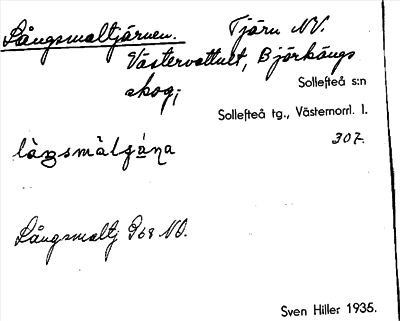 Långsmaltjärnen. Tjärn NV.
Västervattnet, Björkängs
skog;
Sollefteå s:n
Sollefteå tg., Västernorrl. l.
307.
Långsmaltj G68 NO.
Sven Hiller 1935.